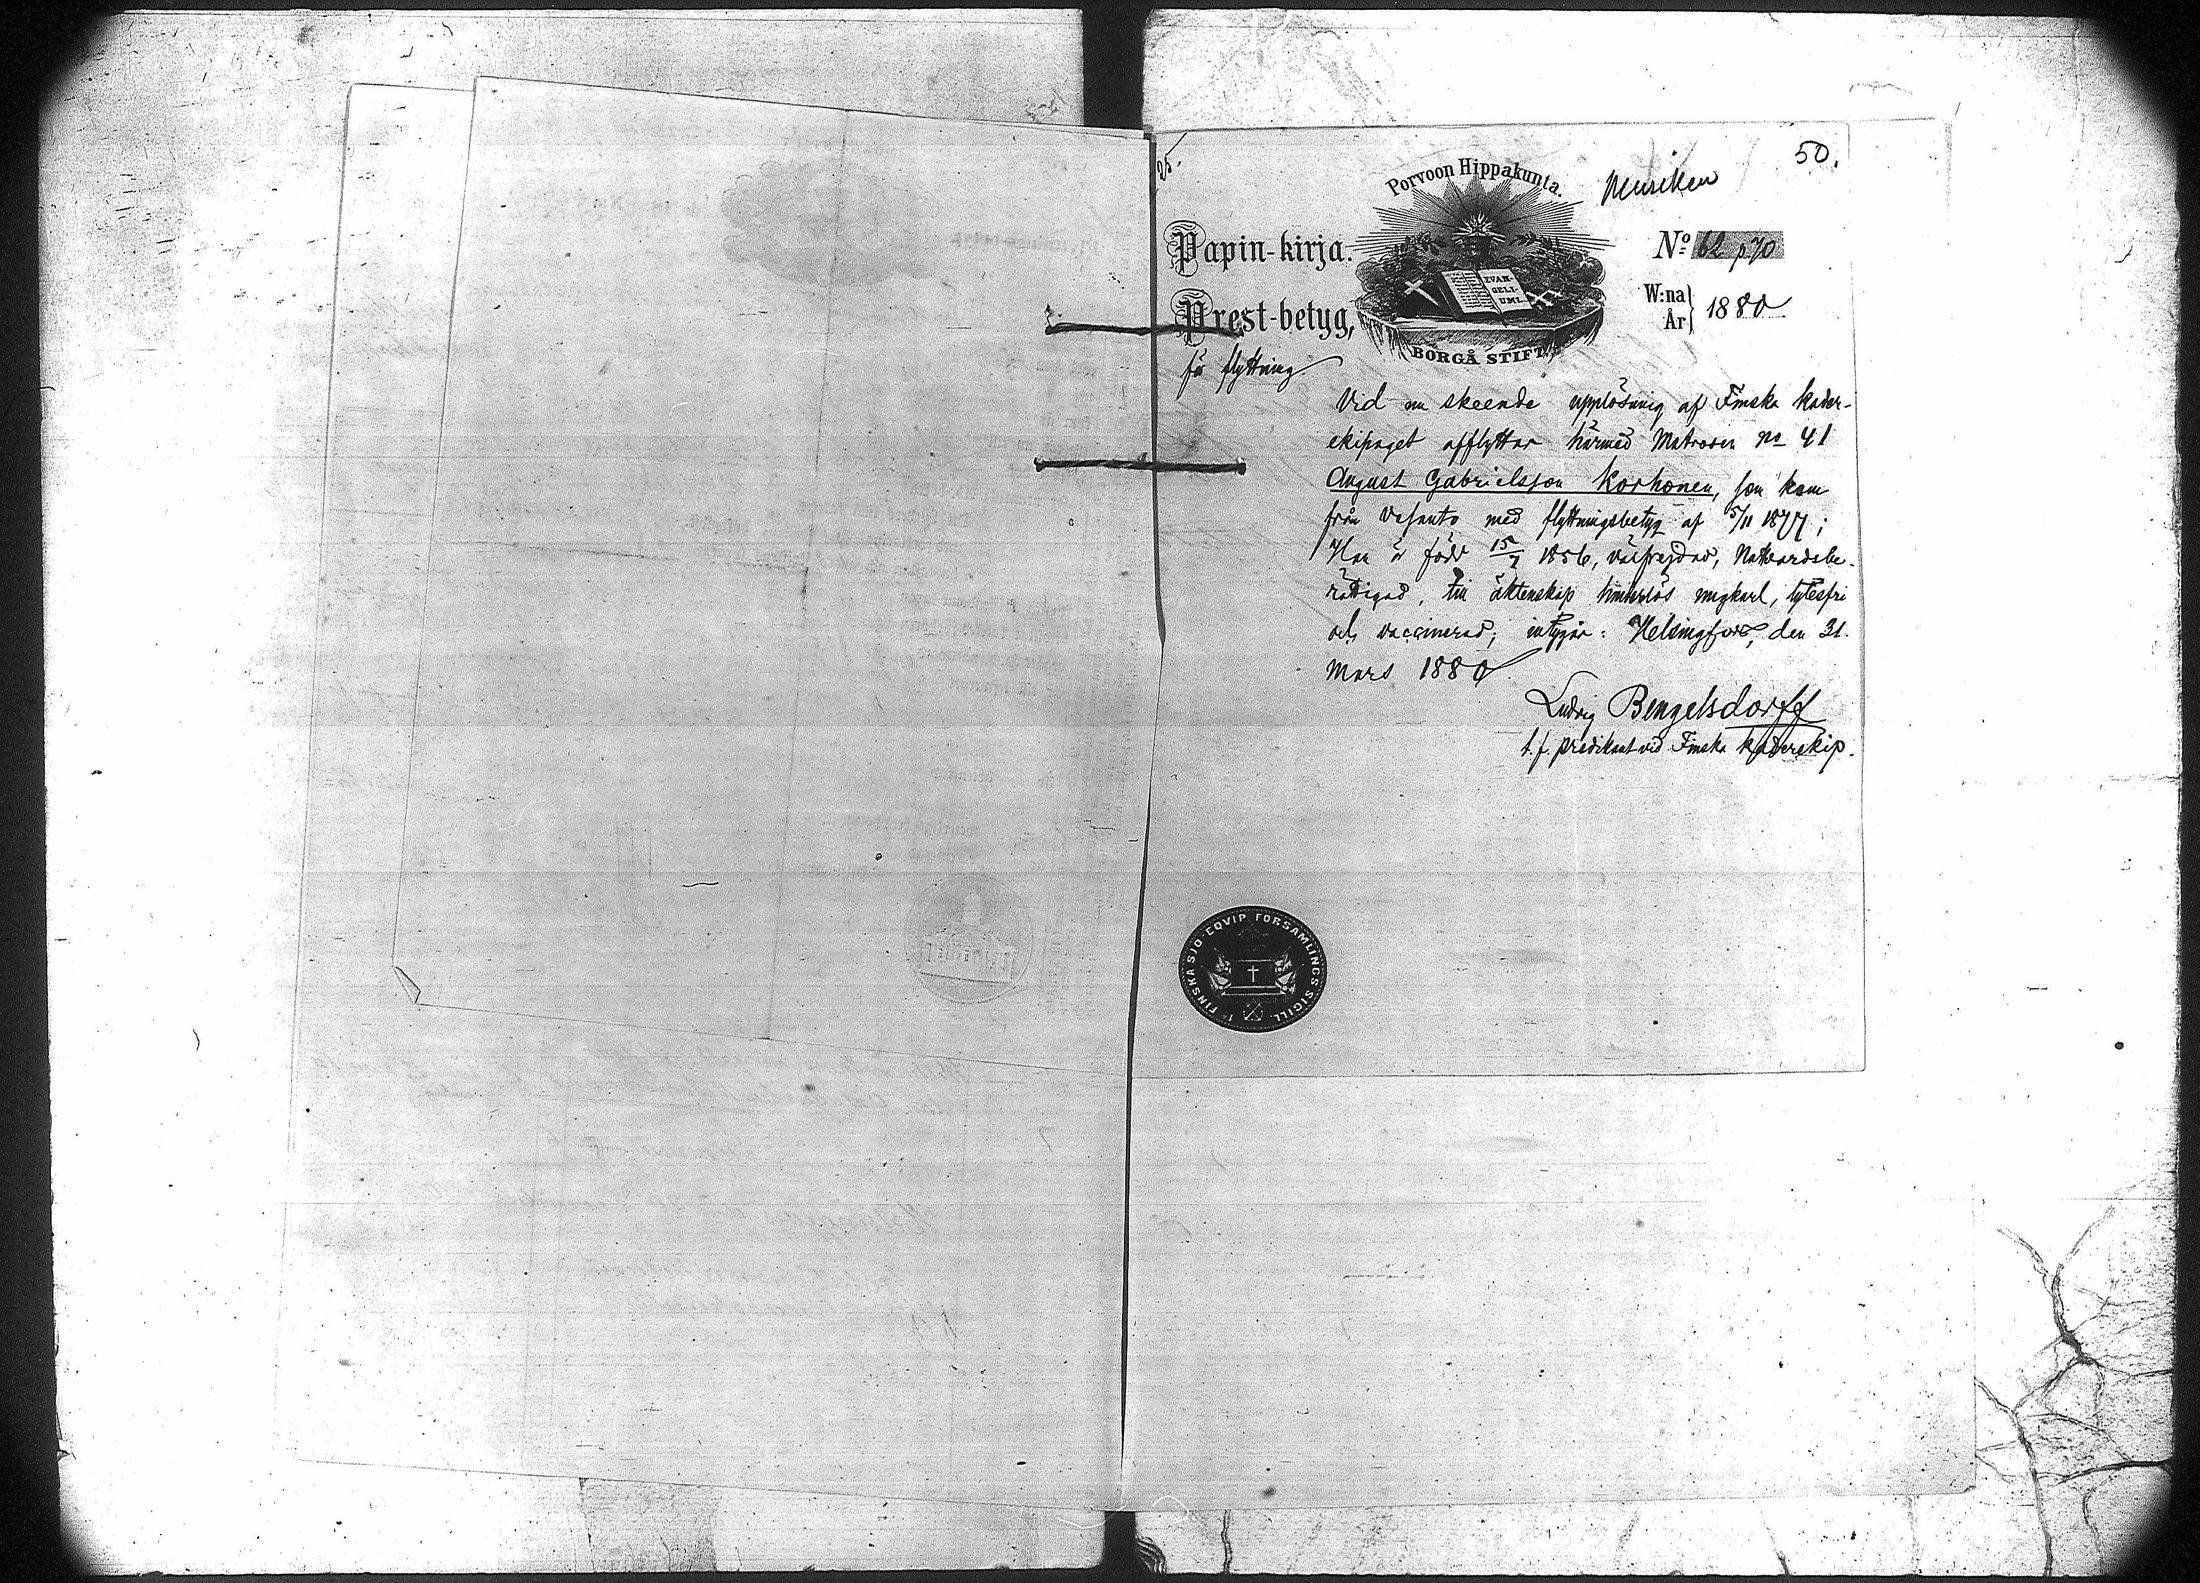 50.
25.
Porvoon Hippakunta.
Musiken
Papin-kirja.
No 62 p 70
EVAN-
GELI-
UMI.
W:na
År
1880
Prest-betyg,
BORGÅ STIFT.
för flyttning.
Vid nu skeende upplösning af Finska kader-
ekipaget afflyttar härmed Matrosen no 41
August Gabrielsson Korhonen, som kom
från Wasanto med flyttningsbetyg af 5/11 1877;
Han är född 15/7 1856, välfrejdad, Nattvardsbe-
rättigad, till äktenskap hinderlös ungkarl, lytesfri
och vaccinerad; intygar: Helsingfors, den 31.
Mars 1880
Ludvig Bengelsdorff
t. f. predikant vid Finska kaderekip.
1a FINSKA SJÖ-EQVIP. FÖRSAMLINGS SIGILL.